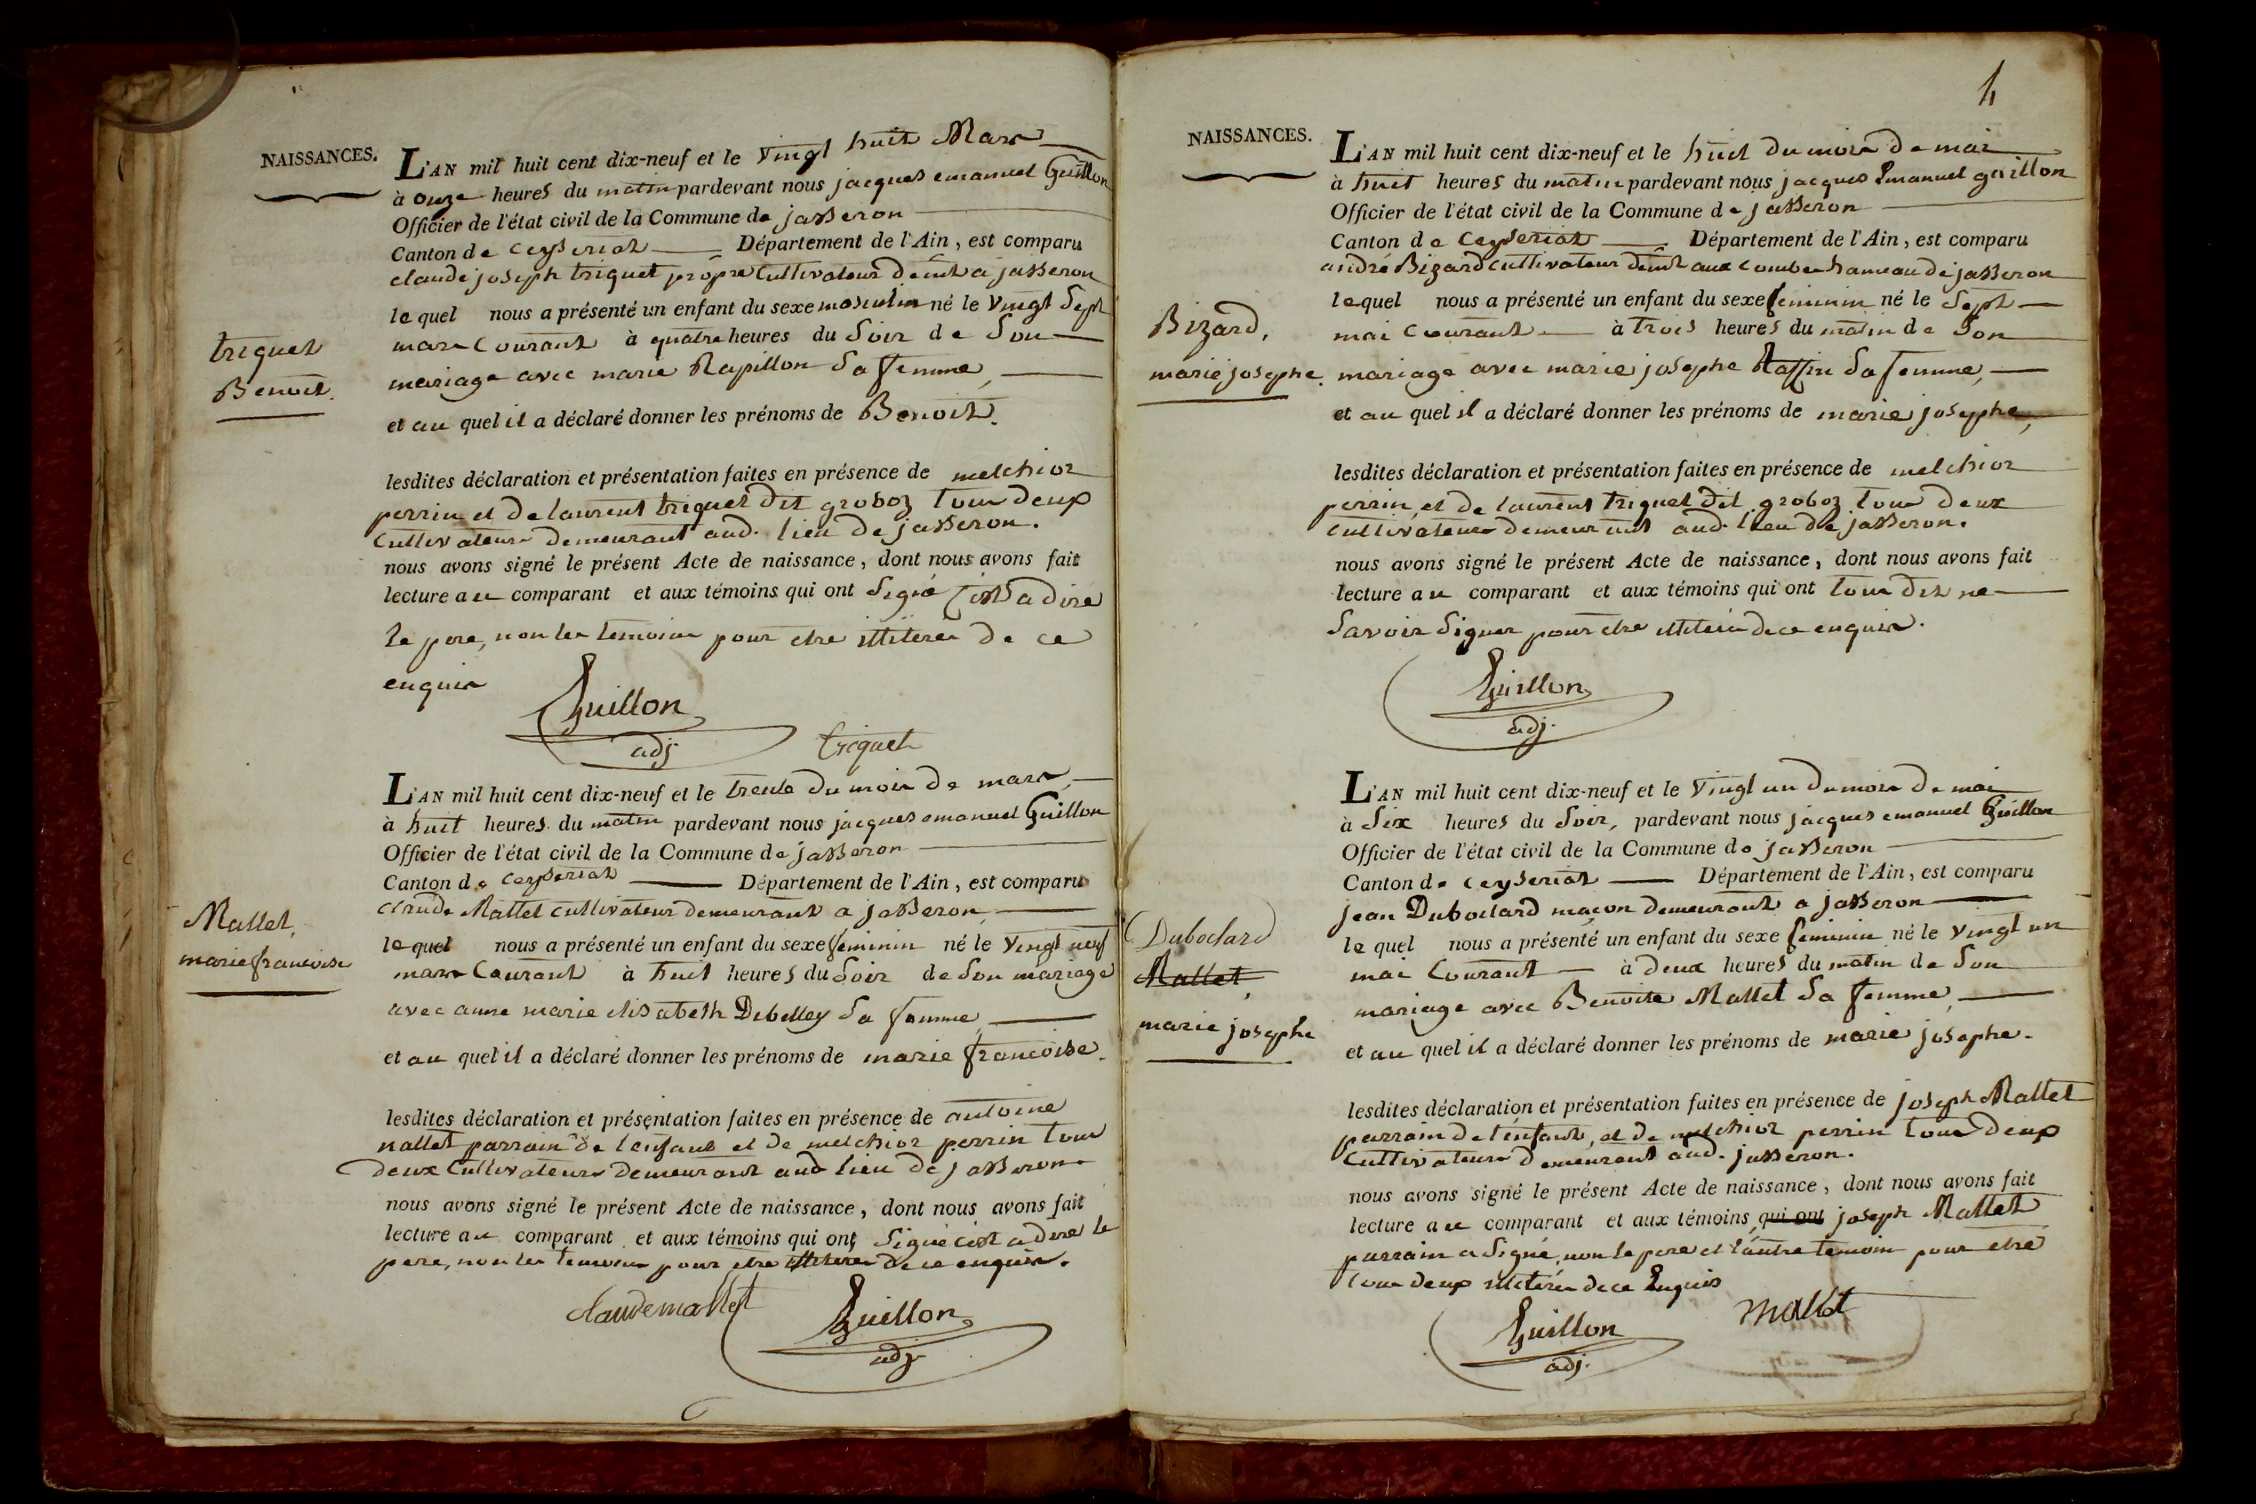 NAISSANCES.
L'AN mil huit cent dix-neuf et le vingt huit Mars
à onze heures du matin pardevant nous jacques emanuel Guillon
Officier de l'état civil de la Commune de jasseron
Canton de Ceyseriat Département de l'Ain, est comparu
claude joseph triquet propre Cultivateur demt a jasseron
lequel nous a présenté un enfant du sexe masculin né le vingt Sept
mars Courant à quatre heures du Soir de Son
mariage avec marie Rapillon Sa femme,
et au quel il a déclaré donner les prénoms de Benoit.
triquet
Benoit.
lesdites déclaration et présentation faites en présence de melchior
perrin et de laurent triquet dit groboz tous deux
Cultivateurs demeurant aud. lieu de jasseron.
nous avons signé le présent Acte de naissance, dont nous avons fait
lecture au comparant et aux témoins qui ont Signé C'est a dire
le pere, non les temoins pour etre illiterés de ce
enquis
Guillon
adj
triquet
L'AN mil huit cent dix-neuf et le trente du mois de mars,
à huit heures du matin pardevant nous jacques emanuel Guillon
Officier de l'état civil de la Commune de jasseron
Canton de Ceyseriat Département de l'Ain, est comparu
claude Mallet cultivateur demeurant a jasseron,
lequel nous a présenté un enfant du sexe féminin né le vingt neuf
mars Courant à huit heures du Soir de Son mariage
avec anne marie elisabeth Debelley Sa femme,
et au quel il a déclaré donner les prénoms de marie francoise.
Mallet,
marie francoise
lesdites déclaration et présentation faites en présence de antoine
nallet parrain de l'enfant et de melchior perrin tous
deux Cultivateurs demeurant aud lieu de jasseron
nous avons signé le présent Acte de naissance, dont nous avons fait
lecture au comparant et aux témoins qui ont Signé c'est a dire le
pere, non les temoins pour etre illiterés de ce enquis.
claude mallet
Guillon
adj
4
NAISSANCES.
L'AN mil huit cent dix-neuf et le huit du mois de mai
à huit heures du matin pardevant nous jacques Emanuel guillon
Officier de l'état civil de la Commune de jasseron
Canton de Ceyseriat Département de l'Ain, est comparu
andré Bizard cultivateur demt aux Combes hameau de jasseron
lequel nous a présenté un enfant du sexe feminin né le Sept
mai Courant à trois heures du matin de Son
mariage avec marie josephe Raffin Sa femme,
et au quel il a déclaré donner les prénoms de marie josephe,
Bizard,
marie josephe.
lesdites déclaration et présentation faites en présence de melchior
perrin, et de laurent triquet dit groboz tous deux
Cultivateurs demeurant aud. lieu de jasseron.
nous avons signé le présent Acte de naissance, dont nous avons fait
lecture au comparant et aux témoins qui ont tous dit ne
Savoir Signer pour etre illiterés de ce enquis.
Guillon
adj.
L'AN mil huit cent dix-neuf et le vingt un du mois de mai
à Six heures du Soir, pardevant nous jacques emanuel Guillon
Officier de l'état civil de la Commune de jasseron
Canton de Ceyseriat Département de l'Ain, est comparu
jean Duboclard maçon demeurant a jasseron
lequel nous a présenté un enfant du sexe feminin né le vingt un
mai Courant à deux heures du matin de Son
mariage avec Benoite Mallet Sa femme,
et au quel il a déclaré donner les prénoms de marie josephe.
Duboclard
Mallet,
marie josephe
lesdites déclaration et présentation faites en présence de joseph Mallet
parrain de l'énfant, et de melchior perrin tous deux
Cultivateurs demeurant aud. jasseron.
nous avons signé le présent Acte de naissance, dont nous avons fait
lecture au comparant et aux témoins qui ont joseph Mallet
parrain a Signé, non le pere et l'autre temoin pour etre
tous deux illiterés de ce Enquis
Guillon
adj.
Mallet